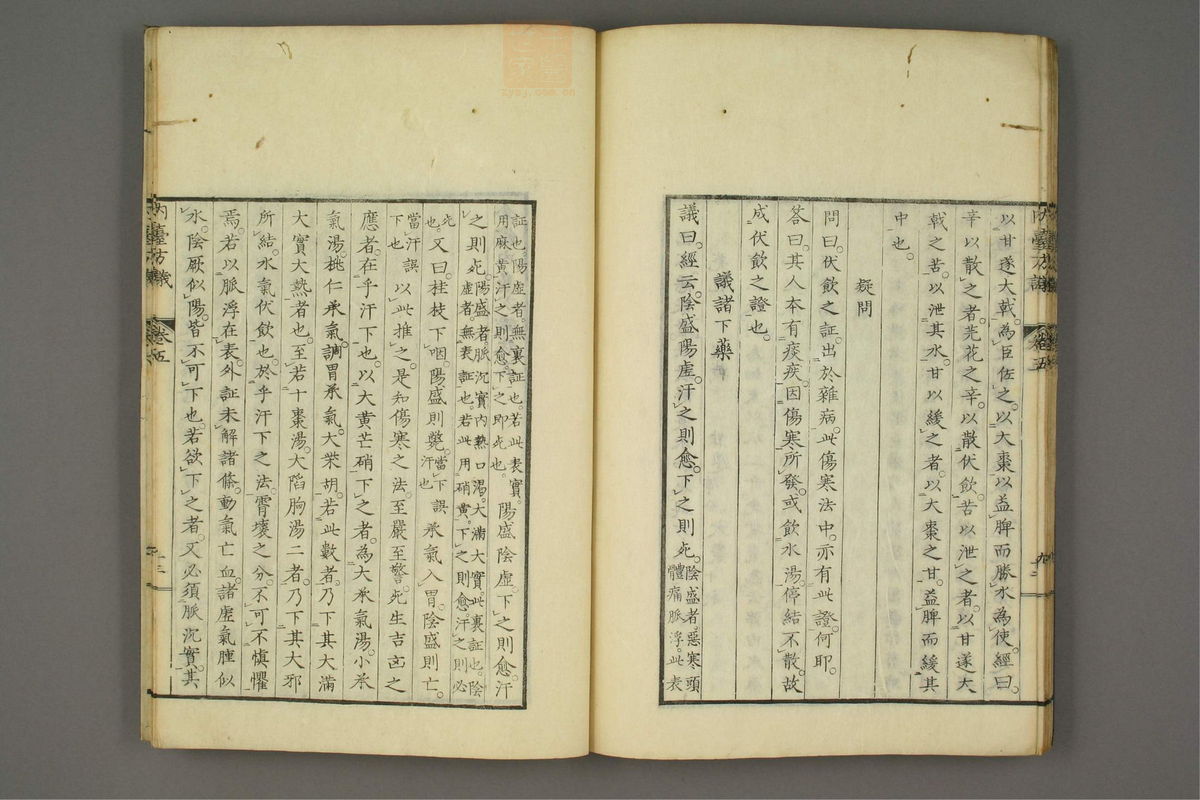 以甘遂大戟。為臣佐之。以大棗以益脾而勝水為使。經曰。
辛以散之者。芫花之辛。以散伏飲。苦以泄之者。以甘遂大
戟之苦。以泄其水。甘以緩之者。以大棗之甘。益脾而緩其
中也。
疑問
問曰。伏飲之証。出於雜病。此傷寒法中。亦有此證。何耶。
答曰。其人本有痰疾。因傷寒所發。或飲水湯。停結不散。故
成伏飲之證也。
議諸下藥
議曰。經云。陰盛陽虛。汗之則愈。下之則死。陰盛者。惡寒頭
體痛脈浮。此表
証也。陽虛者。無裏証也。若此表實。
用麻黃汗之則愈。下之即死也。
陽盛陰虛。下之則愈。汗
之則死。陽盛者。脈沉實。內熱口渴。大滿大實。此裏証也。陰
虛者。無表証也。若此用硝黃。下之則愈。汗之則必
死
也。
又曰。桂枝下咽。陽盛則斃。當下誤
汗也
承氣入胃。陰盛則亡。
當汗誤
下也
以此推之。是知傷寒之法。至嚴至警。死生吉凶之
應者。在乎汗下也。以大黃芒硝下之者。為大承氣湯。小承
氣湯。桃仁承氣。調胃承氣。大柴胡。若此數者。乃下其大滿
大實大熱者也。至若十棗湯。大陷胸湯二者。乃下其大邪
所結。水氣伏飲也。於乎汗下之法。霄壤之分。不可不慎懼
焉。若以脈浮在表。外証未解諸條。動氣亡血。諸虛氣腫似
水。陰厥似陽。皆不可下也。若欲下之者。又必須脈沉實。其
內臺方議
卷五
內臺方議
卷五